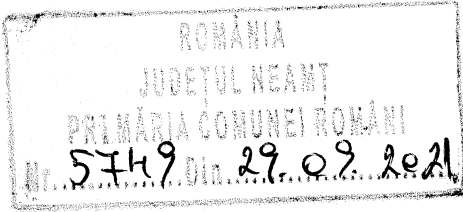 ROMÂNIA
JUDEȚUL NEAMȚ
PRIMĂRIA COMUNEI ROMÂNI
Nr. 5749 Din 29. 09. 2021